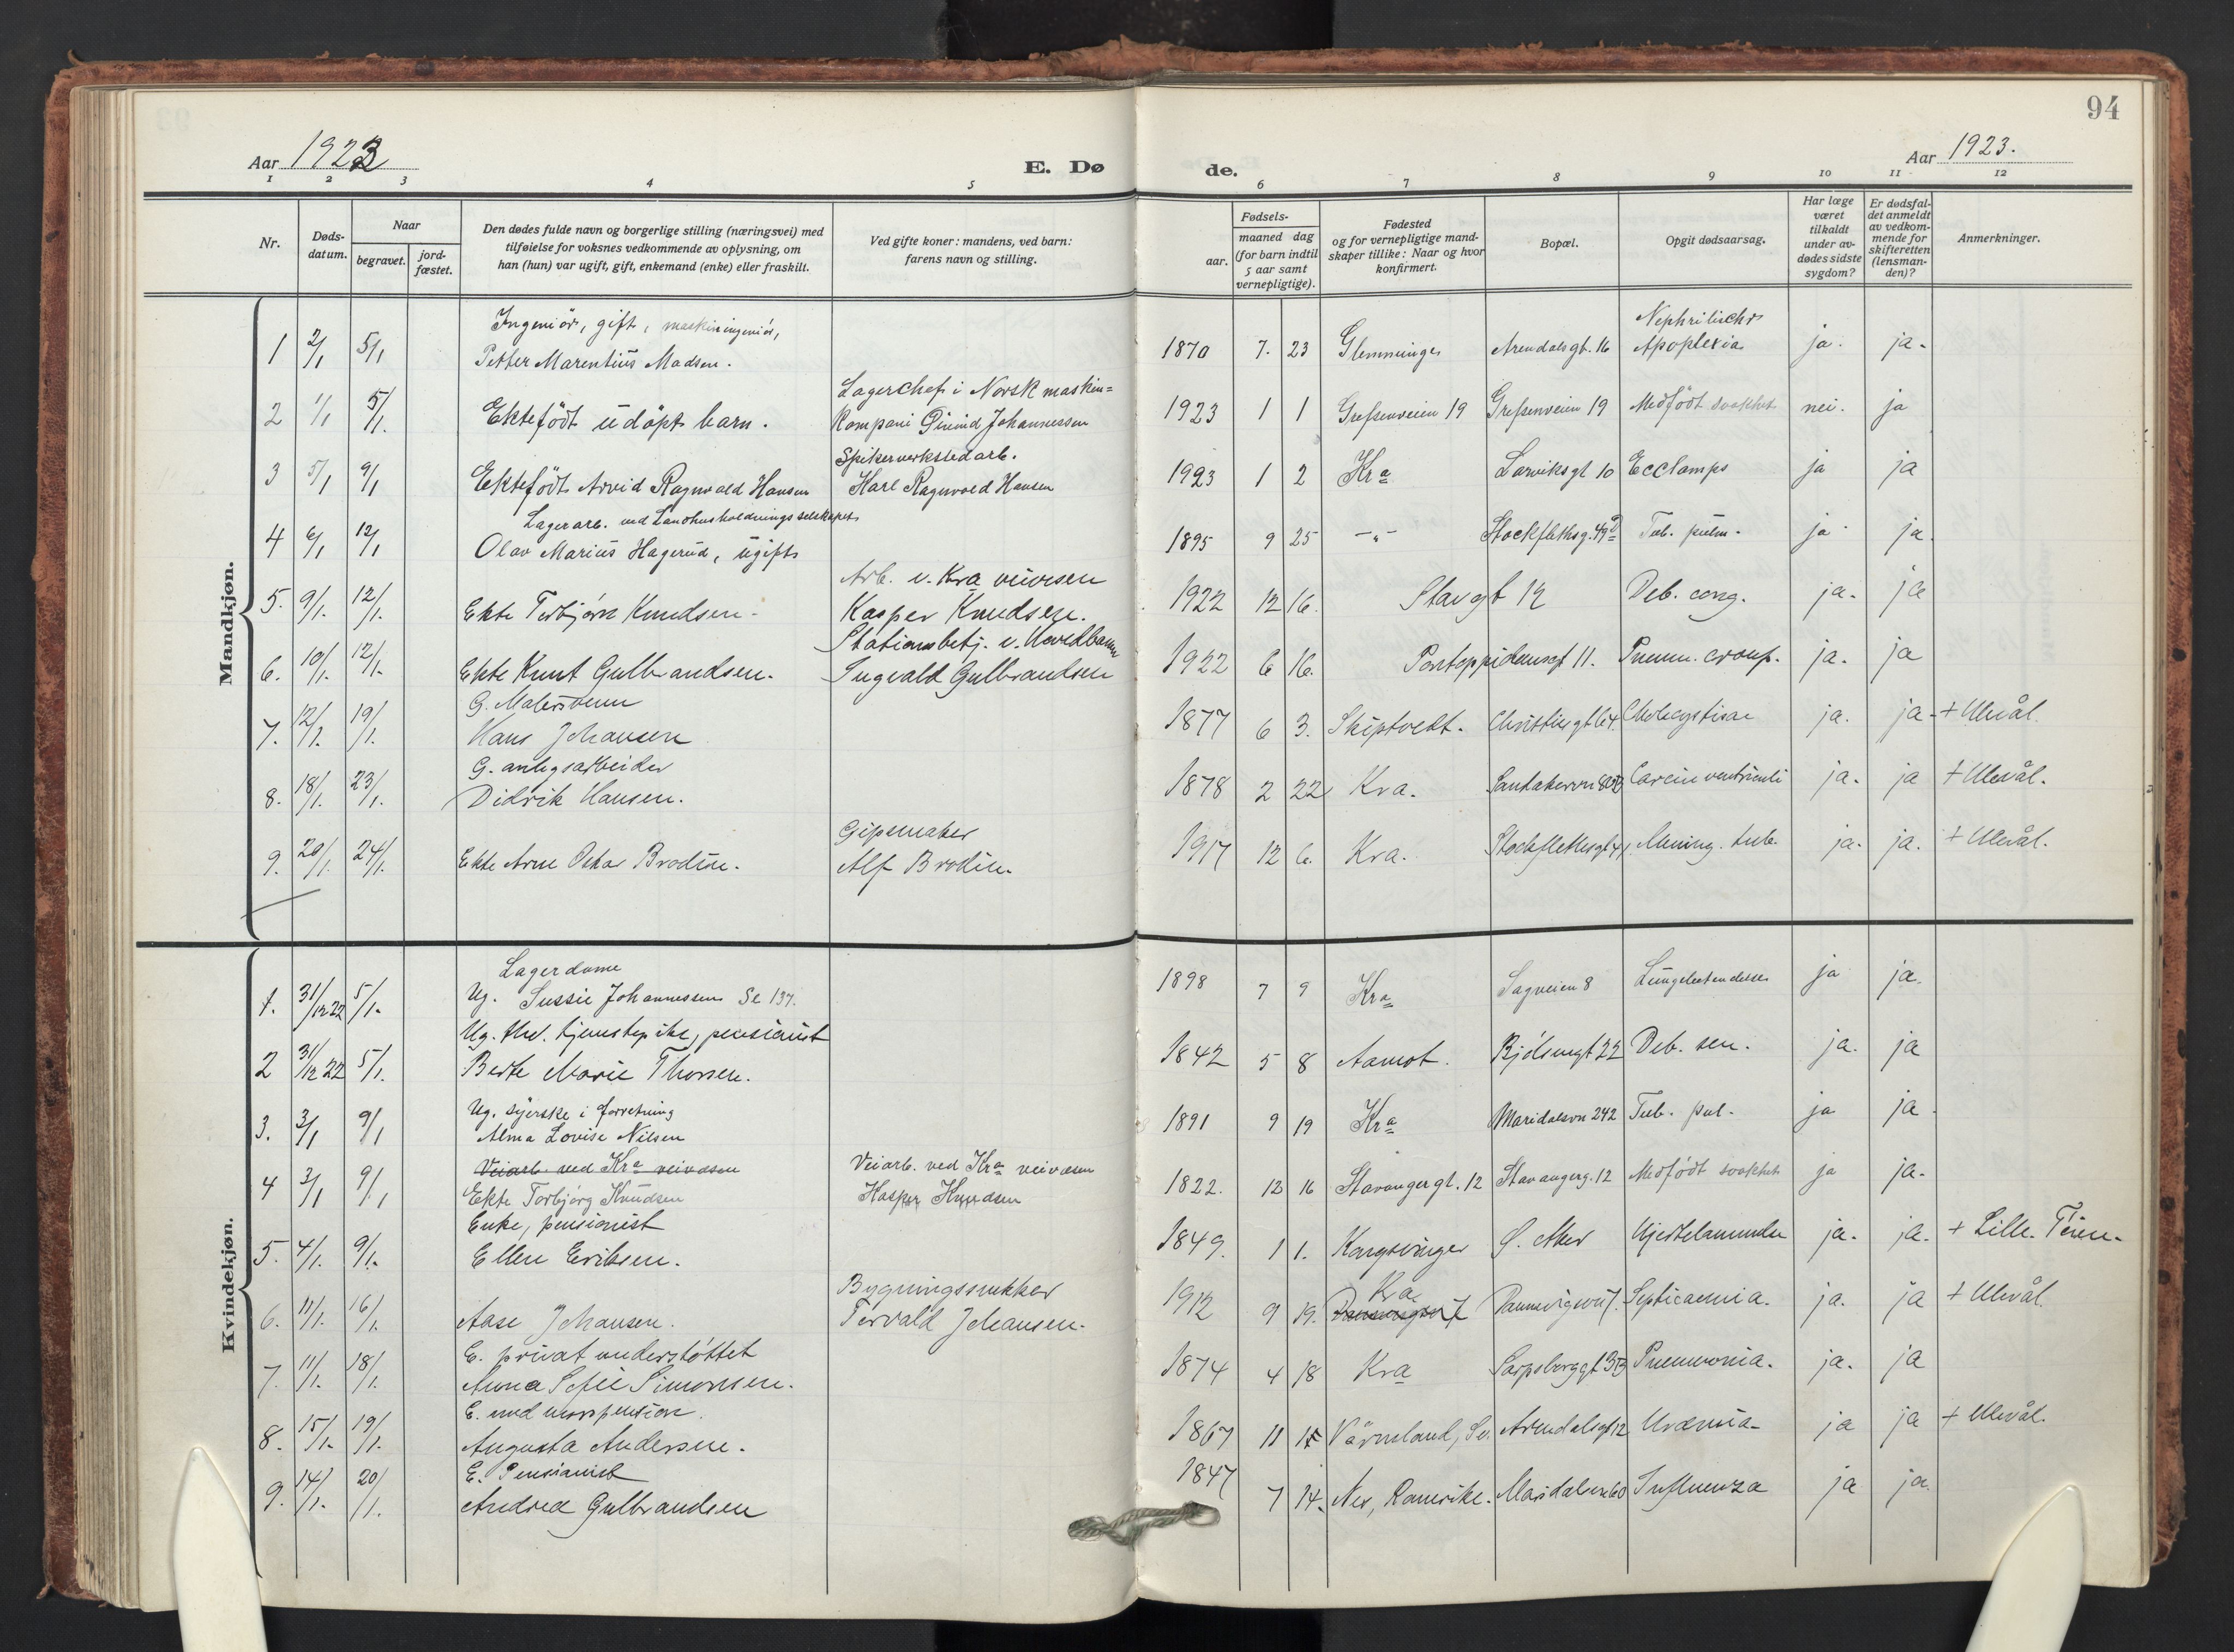 94
Aar 1923
E. Dø
de.
Aar 1923.
1 2 3 4 5 6 7 8 9 10 11 12
Nr.
Døds-
datum.
Naar
begravet.
jord-
fæstet.
Den dødes fulde navn og borgerlige stilling (næringsvei) med
tilføielse for voksnes vedkommende av oplysning, om
han (hun) var ugift, gift, enkemand (enke) eller fraskilt.
Ved gifte koner: mandens, ved barn:
farens navn og stilling.
Fødsels-
aar.
maaned dag
(for barn indtil
5 aar samt
vernepligtige).
Fødested
og for vernepligtige mand-
skaper tillike: Naar og hvor
konfirmert.
Bopæl.
Opgit dødsaarsag.
Har læge
været
tilkaldt
under av-
dødes sidste
sygdom?
Er dødsfal-
det anmeldt
av vedkom-
mende for
skifteretten
(lensman-
den)?
Anmerkninger.
Mandkjøn.
Ingeniör, gift, maskiningeniör,
1 2/1 5/1 Petter Marentius Madsen. 1870 7. 23 Glemminge Arendalsgt. 16 Apoplexia ja. ja.
Lagerchef i Norsk maskin=
2 1/1 5/1. Ektefödt udöpt barn. Kompani Öivind Johannessen 1923 1 1 Grefsenveien 19 Grefsenveien 19 Medfödt svakhet nei. ja
Spikerverksted arb.
3 5/1 9/1 Ektefödt Arvid Ragnvald Hansen Karl Ragnvald Hansen 1923 1 2 Kra Larviksgt 10 Ecclamps ja ja
Lagerarb. ved Landhusholdningsselskapet
4 6/1 12/1 Olav Marius Hagerud, ugift 1895 9 25 -"- Stockflethsg. 49 Tub. pulm. ja ja.
Arb. v. Kra veivesen
5. 9/1. 12/1. Ekte Torbjørn Knudsen. Kasper Knudsen. 1922 12 16. Stavgt 12 Deb. cong. ja. ja
Stationsbetj. v. Hovedbanen
6. 10/1. 12/1. Ekte Knut Gulbrandsen. Ingvald Gulbrandsen 1922 6 16. Pontoppidansgt 11. Pneum. croup. ja. ja
G. Malersvenn
7. 12/1. 19/1. Hans Johansen 1877 6 3. Skiptvedt. Christiesgt 64. ja. ja. + Ulevål.
G. anlegsarbeider
8. 18/1. 23/1. Didrik Hansen. 1878 2 22 Kra. Carcin ventriculi ja. ja + Ulevål.
Gipsmaker
9. 20/1. 24/1. Ekte Arne Oskar Brodin. Alf Brodin. 1917 12 6. Kra. Mening. tub. ja. ja. + Ulevål.
Kvindekjøn.
Lagerdame
1. 31/12 22 5/1. Ug. Sussie Johannessen Se 137. 1898 7 9 Kra Sagveien 8 Lungebetendelse ja ja.
Ug. fhv. tjenestepike, pensionist
2 31/12 22 5/1. Berte Marie Thorsen. 1842 5 8 Aamot. Bjölsengt 22 Deb. sen. ja. ja
Ug. syerske i forretning
3. 3/1 9/1 Alma Lovise Nilsen 1891 9 19 Kra Maridalsvn 242 Tub. pul. ja ja.
Veiarb. ved Kra veivæsen Veiarb. ved Kra veivæsen
4 3/1 9/1 Ekte Torbjörg Knudsen Kasper Knudsen 1822. 12 16 Stavangergt. 12 Stavangerg. 12 Medfödt svakhet ja ja.
Enke, pensionist
5. 4/1. 9/1. Ellen Eriksen. 1849. 1 1. Kongsvinger Ø. Aker Hjertelammelse ja. ja. + Lille. Tøien.
Bygningssnekker Kra
6. 11/1. 16/1. Aase Johansen. Torvald Johansen. 1912 9 19. Septicaemia. ja. ja + Ulevål.
E. privat understøttet
7. 11/1. 18/1. Anna Sofie Simonsen. 1874 4 18 Kra Sarpsborggt 3B Pneumonia. ja. ja
E. med morspension.
8. 15/1. 19/1. Augusta Andersen. 1867 11 15 Värmland, Sv. Arendalsgt 12 Uræmia ja ja + Ulevål.
E. Pensionist
9. 14/1. 20/1. Andrea Gulbrandsen 1847 7 14. Nes, Romerike. Maridalsvn 60 Influenza ja ja.